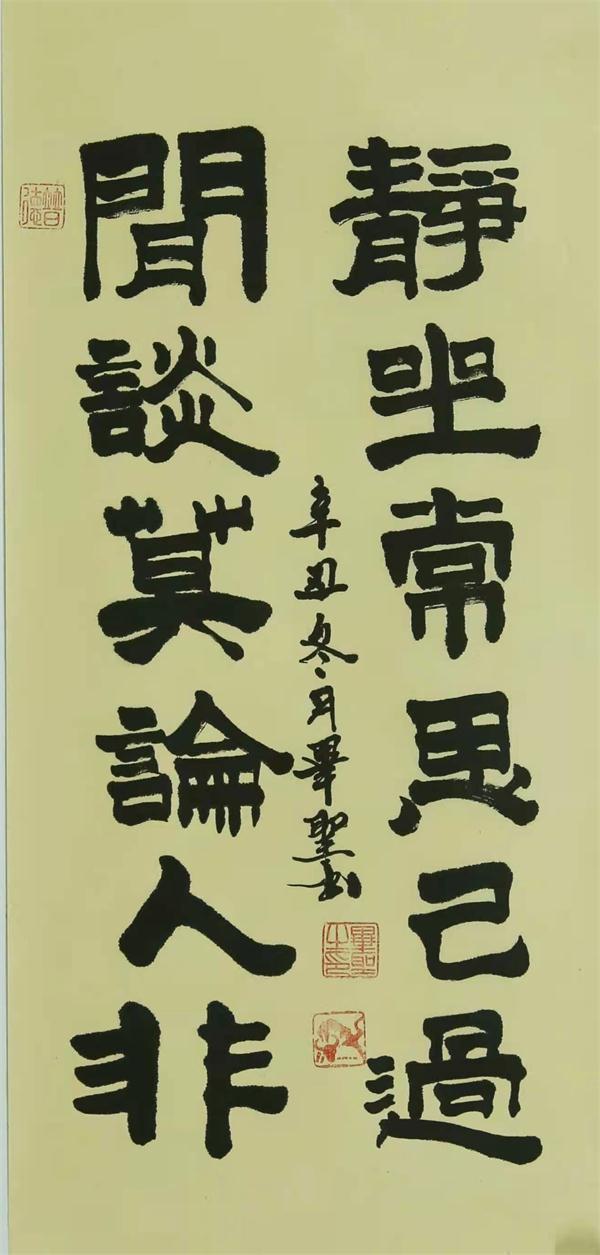 靜坐常思己過
閒談莫論人非
辛丑冬月畢聖書
畢聖之印